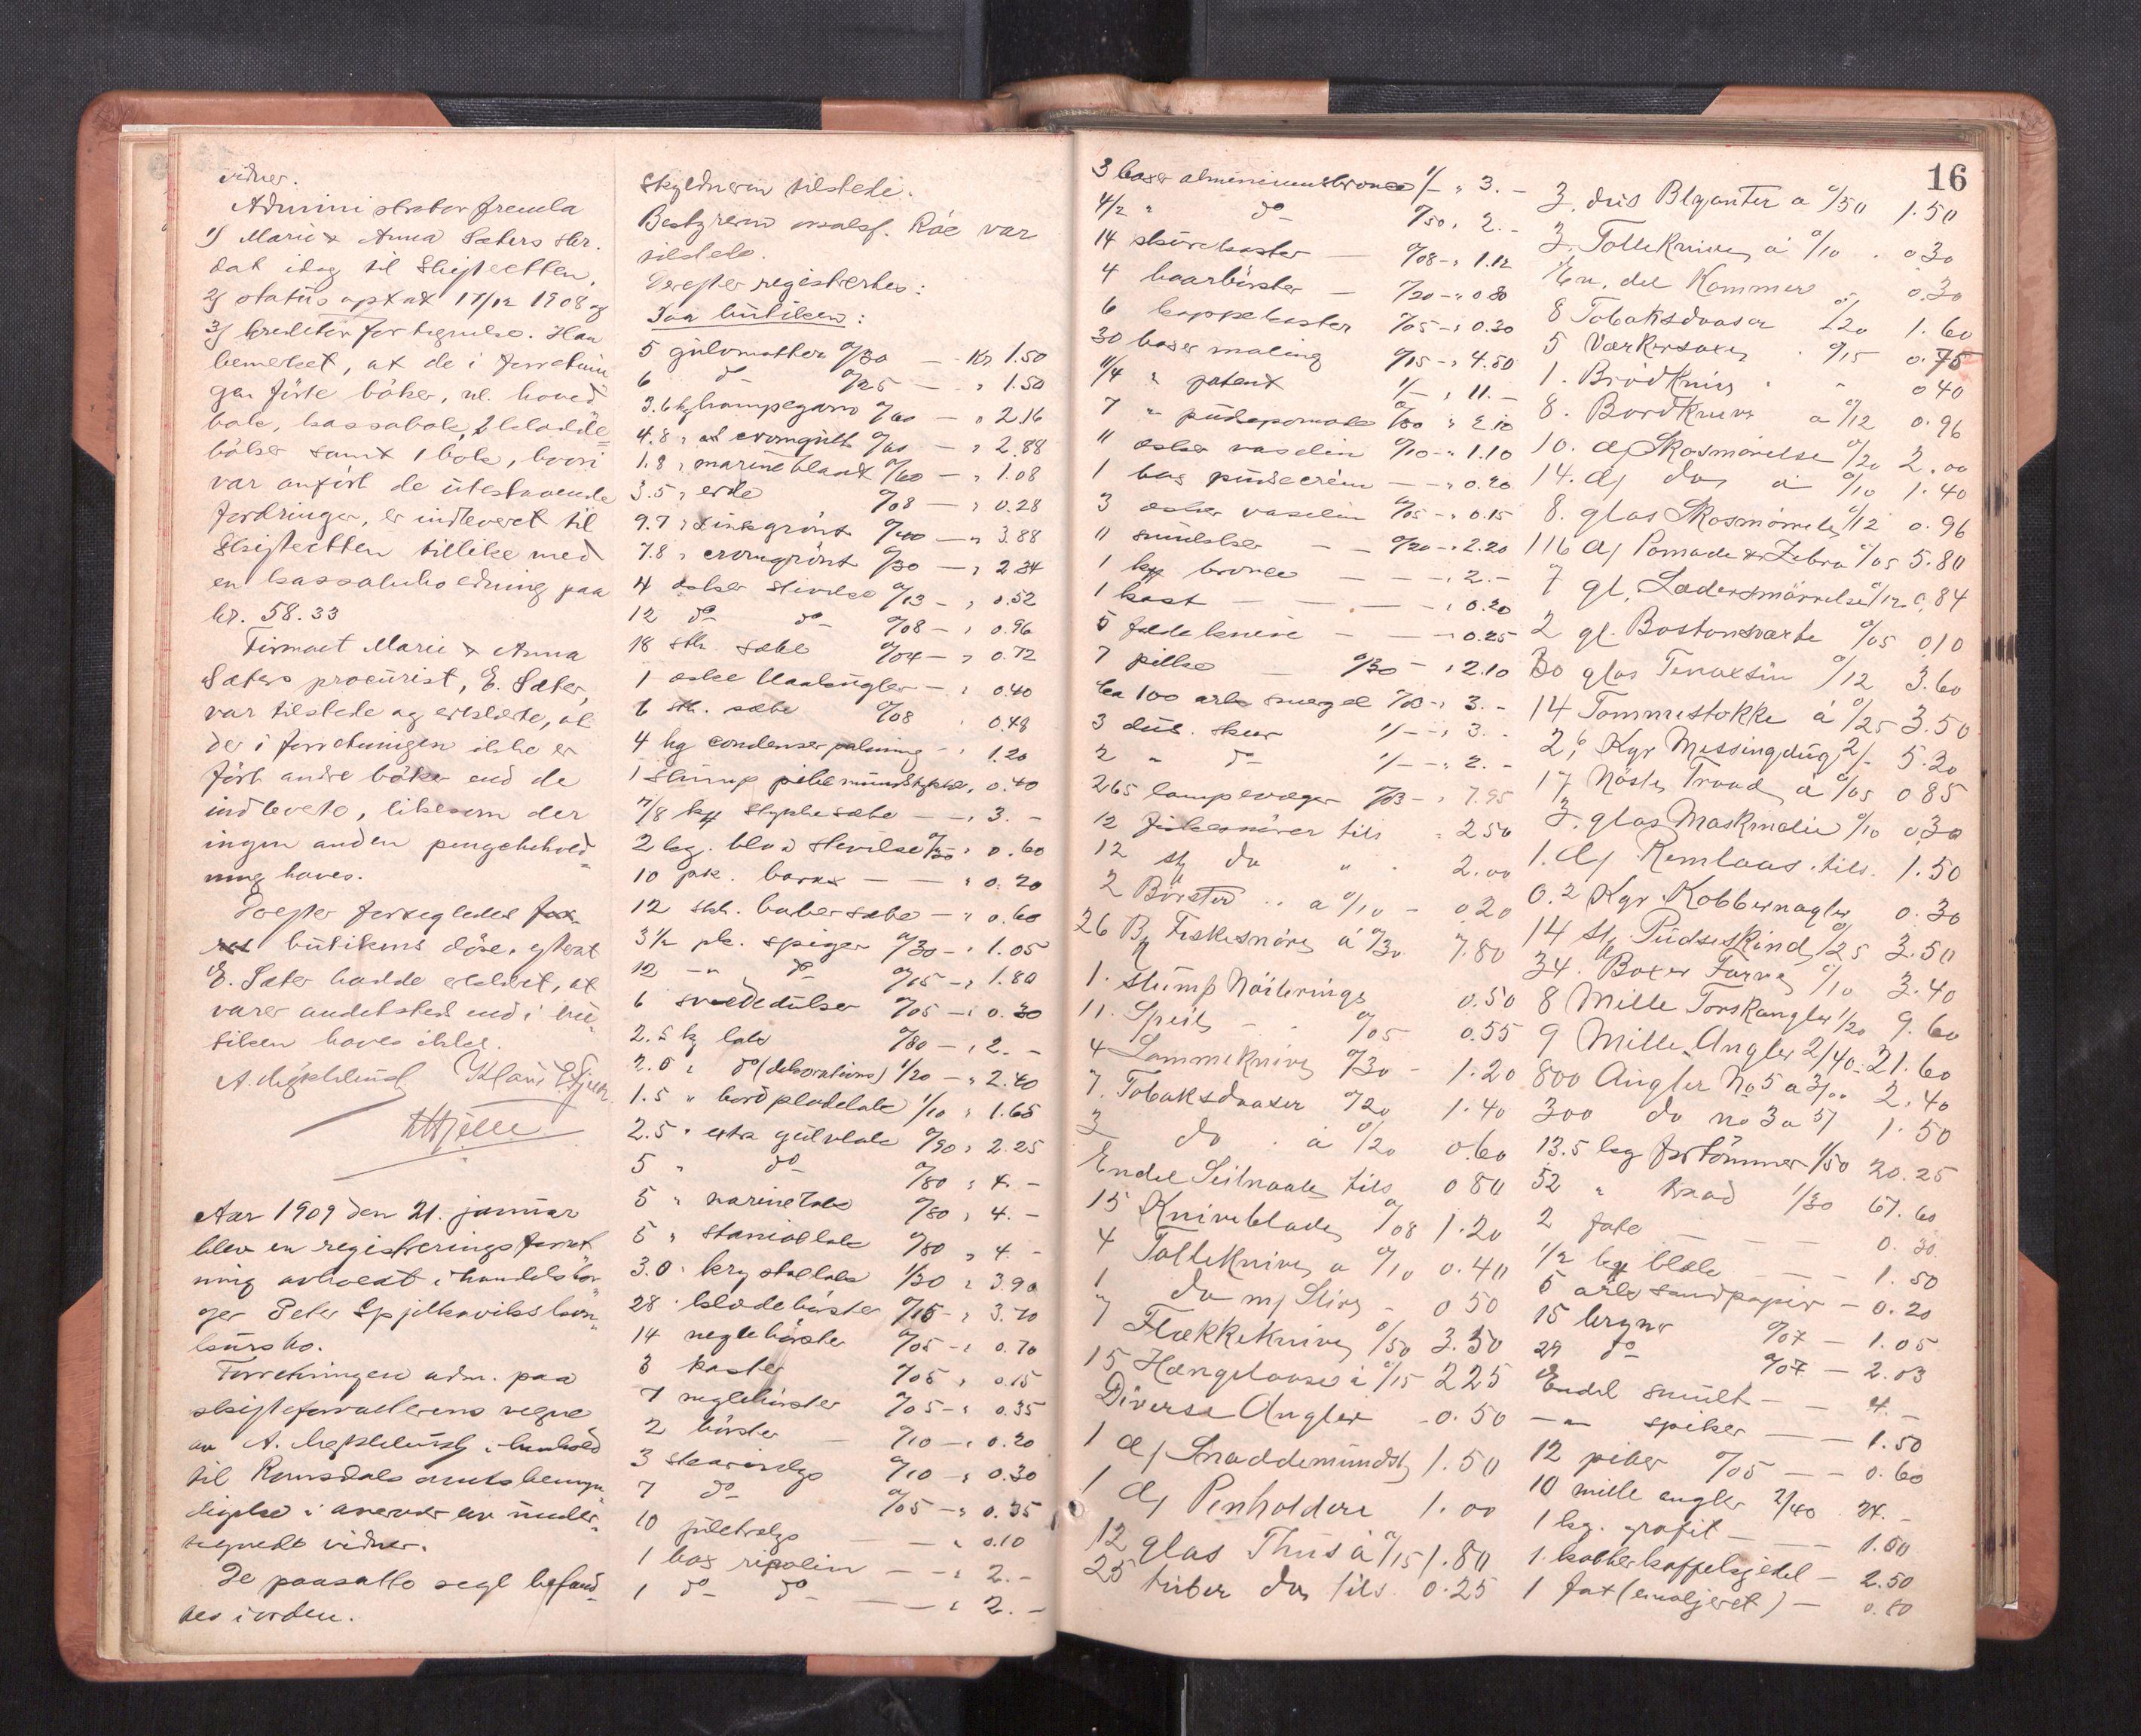 vidner.
Administrator fremla
1) Marie & Anna Sæters skr.
dat idag til Skifteretten,
2) status optat 17/12 1908 og
3) kreditorfortegnelse. Han
bemerket, at de i forretnin
gen førte bøker, nl. hoved
bok, kassabok, 2 kladde=
bøker samt 1 bok, hvori
var anført de utestaaende
fordringer, er indleveret til
Skifteretten tillike med
en kassabeholdning paa
kr. 58.33
Firmaet Marie & Anna
Sæters procurist, E. Sæter,
var tilstede og erklærte, at
der i forretningen ikke er
ført andre bøker end de
indleverte, likesom der
ingen anden pengebehold=
ning haves.
Derefter forsegledes
butikens døre, efterat
E. Sæter hadde erklært, at
varer andetsteds end i bu=
tiken haves ikke.
Aar 1909 den 21. januar
blev en registreringsforret
ning avholdt i handelsbor
ger Peter Spjelkaviks kon=
kursbo.
Forretningen adm. paa
skifteforvalterens vegne
av A. i henhold
til Romsdals amts bemyn=
digelse i overvær av under=
tegnede vidner.
De paasatte segl befand=
tes i orden.
Skyldneren tilstede.
Bestyreren Råe var
tilstede.
Derefter registrertes:
I butiken:
5 gulvmatter 0/30 — Kr 1.50
6 do 0/25 — " 1.50
3.6 kg hampegarn 0/60 — " 2.16
4.8 " cromgult 0/60 — " 2.88
1.8 " marineblaat 0/60 — " 1.08
3.5 " 0/08 — " 0.28
9.7 " zinkgrønt 0/40 — " 3.88
7.8 " cromgrønt 0/30 — " 2.34
4 æsker stivelse 0/13 — " 0.52
12 do do 0/08 — " 0.96
18 stk. sæbe 0/04 — " 0.72
1 æske — " 0.40
6 stk. sæbe 0/08 " 0.48
4 kg condenserpakning — " 1.20
1 slump pibemundstykker, 0.40
7/8 kg stykkesæbe — " 3. —
2 kg. blaa stivelse 0/30 " 0.60
10 pk. borax — — " 0.20
12 stk. barbersæbe — " 0.60
3½ pk. spiger 0/30 — " 1.05
12 — " do 0/15 — " 1.80
6 0/05 — " 0.30
2.5 kg lak 0/80 — " 2. —
2.0 " do (dekorations) 1/20 — " 2.40
1.5 " bordpladelak 1/10 " 1.65
2.5 " extra gulvlak 0/90 " 2.25
5 " do 0/80 " 4. —
5 " marinelak 0/80 " 4. —
5 " staniollak 0/80 " 4. —
3.0 " krystallak 1/30 " 3.90
28 klædebørster 0/15 — " 3.70
14 neglebørster 0/05 — " 0.70
3 koster 0/05 " 0.15
7 neglebørster 0/05 — " 0.35
2 børster — 0/10 — " 0.20
3 stearinlys 0/10 — " 0.30
7 do 0/05 — " 0.35
10 juletrælys — " 0.10
1 box ripolin — — " 2. —
1 do do — — " 2. —
16
3 boxer aluminiumsbronce 1/— " 3. —
4/2 " do 0/50 " 2. —
14 skurekoster — 0/08 — " 1.12
4 haarbørster — 0/20 — " 0.80
6 koppekoster 0/05 — " 0.30
30 boxer maling 0/15 — " 4.50
11/4 " patent 1/— " 11. —
7 " pudsepomade 0/30 " 2.10
11 æsker vaselin 0/10 — " 1.10
1 box pudsecrèm — — " 0.20
3 æsker vaselin 0/05 — " 0.15
11 — — 0/20 — " 2.20
1 kg bronce — — — " 2. —
1 kost — — — " 0.20
5 foldeknive — — 0.25
7 0/30 — " 2.10
ca 100 ark smergel 0/03 — " 3. —
3 dus. 1/— — " 3. —
2 " do 1/— — " 2. —
265 lampevæger 0/03 — " 7.95
12 fiskesnører tils " 2.50
12 stk do " " 2.00
2 Børster .. a 0/10 — 0 20
26 Fiskesnøre á 0/30 7.80
1. slump Nøiteringe 0.50
11. Speile — 0/05 0.55
4 Lommeknive 0/30 — 1.20
7. Tobaksdaaser 0/20 1.40
3 do . á 0/20 0.60
Endel Seilnaale tils 0 80
15 Kniveblade 0/08 1.20
4 Tolleknive a 0/10 0.40
1 do m/ Slire — 0 50
7 Flækkeknive 0/50 3.50
15 Hængelaase á 0/15 2 25
Diverse Angler — 0.50
1 d/ Snaddemundst, 1.50
1 d/ Penholdere 1.00
12 glas Thus á 0/15 1.80
25 tuber do, tils. 0.25
3. dus Blyanter a 0/50 1.50
3. Tolleknive á 0/10 . 0 30
En. del Kammer 0.30
8 Tobaksdaaser 0/20 1.60
5 . 0/15 0.75
1. Brødkniv " " 0 40
8. Bordknive a 0/12 0.96
10. d/ Skosmørelse 0/20 2.00
14. d/ do, á 0/10 1.40
8. glas Skosmørrelse 0/12 0.96
116 d/ Pomade & Zebra 0/05 5.80
7 gl. Lædersmørrelse 0/12 0.84
2 gl. Bostonsvarte 0/05 0 10
30 glas 0/12 3.60
14 Tommestokke á 0/25 3.50
2,6 Kgr Messingdug 2/— 5.20
17 Nøster Traad á 0/05 0 85
3. glas Maskinolie 0/10 0 30
1. d/ Remlaas . tils. 1.50
0.2 Kgr. Kobbernagler 0.30
14 st, Pudseskind 0/25 3.50
34. Boxer Farve 0/10 3.40
8 Mille Torskangler 1/20 9.60
9 Mille Angler 2/40 — 21.60
800 Angler No 5 a 3/00 2.40
300 do no 3 a 5/ 1.50
13.5 kg fortømmer 1/50 20.25
52 " traad 1/30 67.60
2 fate — — — 0.30
½ kg blæk — — 1.50
5 ark sandpapir — 0.20
15 bryner 0/07 — 1.05
29 do 0/07 — 2.03
Endel smult — — 4. —
— " — spiker — — 1.50
12 piber 0/05 — — 0.60
10 mille angler 2/40 24. —
1 kg. grafit — — 1.50
1 kobberkaffekjedel — 2.50
1 fat (emaljeret) — 0.80